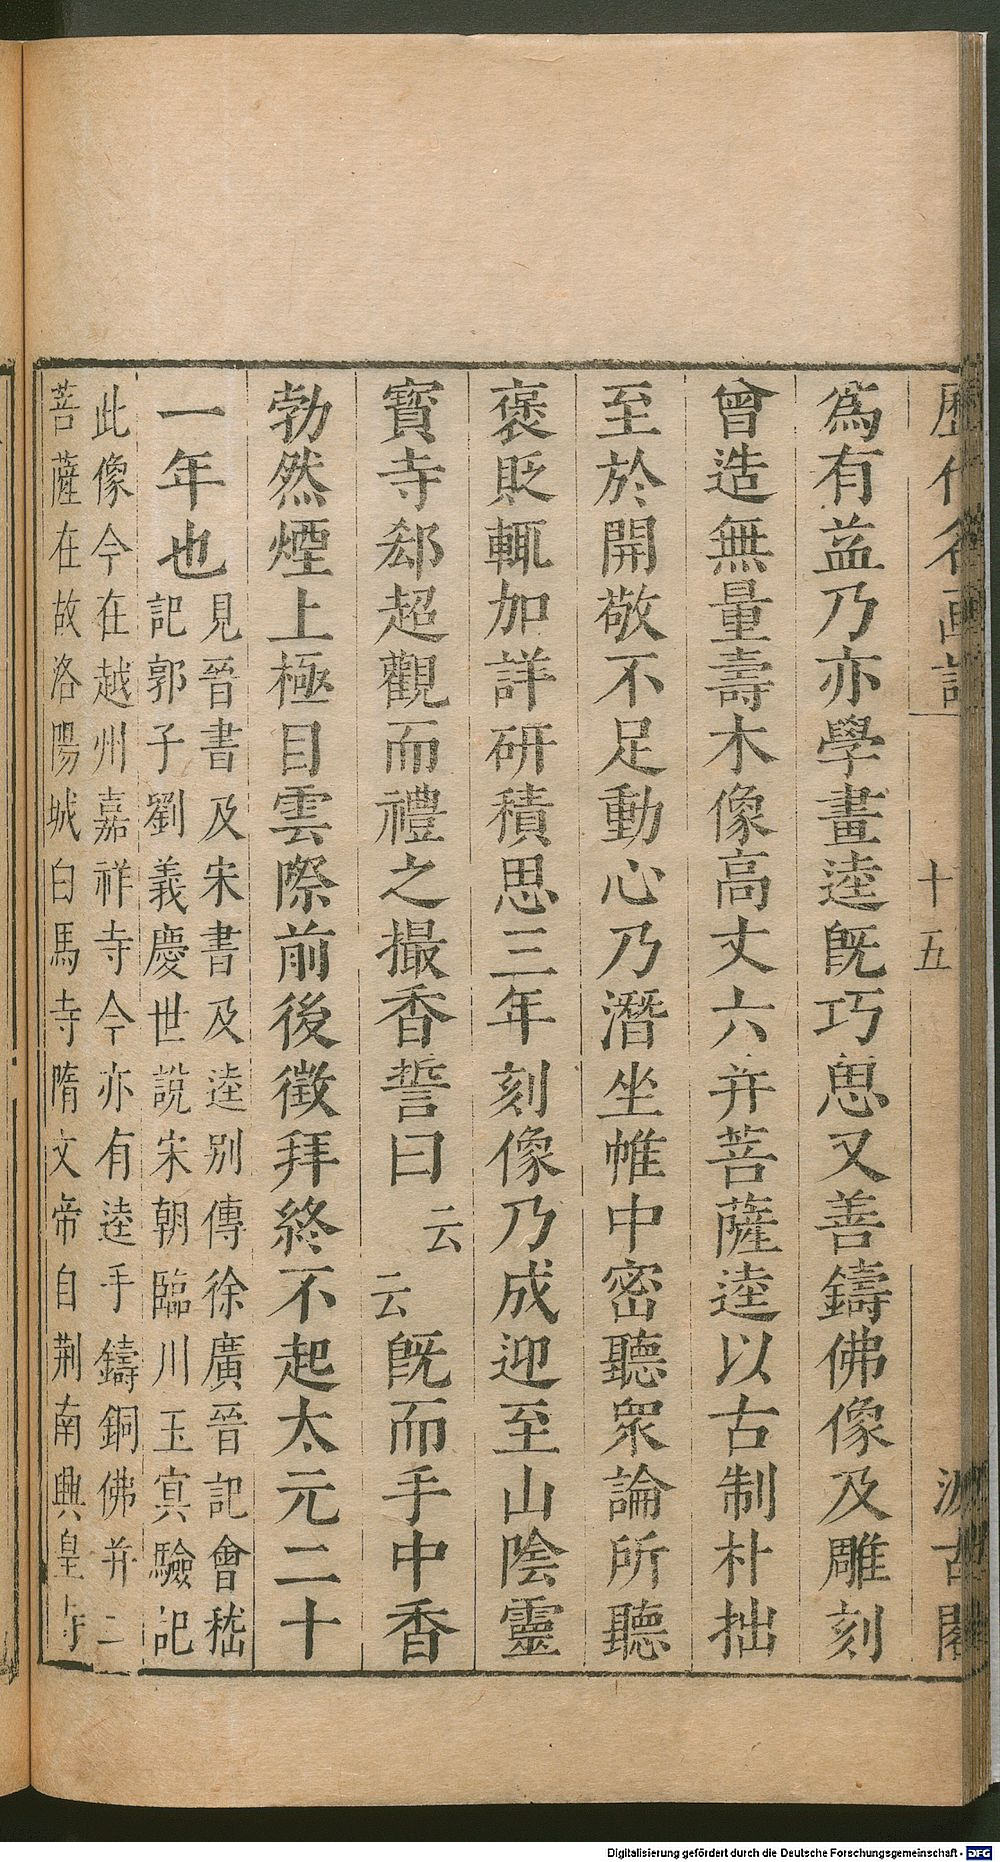 歷代名画記 十五 汲古閣
為有益乃亦學畫逵既巧思又善鑄佛像及雕刻
曾造無量壽木像高丈六并菩薩逵以古制朴拙
至於開敬不足動心乃潛坐帷中密聽衆論所聽
褒貶輒加詳研積思三年刻像乃成迎至山陰靈
寳寺郄超觀而禮之撮香誓曰云云既而手中香
勃然煙上極目雲際前後徵拜終不起太元二十
一年也見晉書及宋書及逵別傳徐廣晉記會嵇
記郭子劉義慶世說宋朝臨川王㝠驗記
此像今在越州嘉祥寺今亦有逵手鑄銅佛并二
菩薩在故洛陽城白馬寺隋文帝自荆南興皇寺
Digitalisierung gefördert durch die Deutsche Forschungsgemeinschaft - DFG